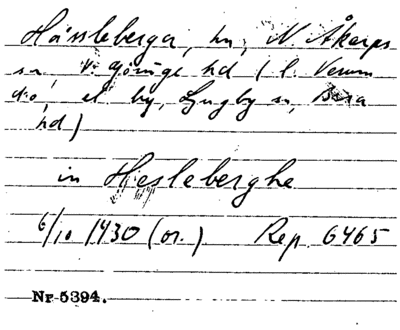 Hässleberga, hn, N. Åkarps
sn, V. Göinge hd (l. Verum
d:o, el by, Ljungby sn, Bara
hd)
in Hesleberghe
6/10 1430 (or.) Rep 6465
Nr 5394.